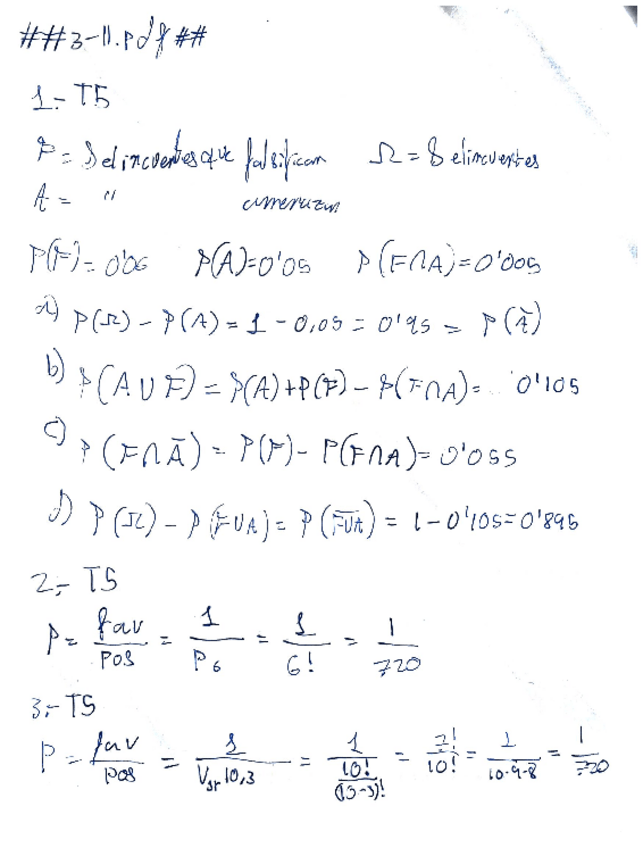 ##3-11.pdf##
1.- T5
F = Delincuentes que falsifican Ω = Delincuentes
A = "
P(F)=0'06 P(A)=0'05 P(F∩A)=0'005
a) P(Ω) - P(A) = 1 - 0,05 = 0'95 = P(Ā)
b) P(A∪F) = P(A)+P(F) - P(F∩A) = 0'105
c) P(F∩Ā) = P(F) - P(F∩A) = 0'055
d) P(Ω) - P(F∪A) = P(F̅∪̅A̅) = 1 - 0'105 = 0'895
2.- T5
P = fav/pos = 1/P₆ = 1/6! = 1/720
3.- T5
P = fav/pos = 1/Vsr 10,3 = 1/(10!/(10-3)!) = 7!/10! = 1/10·9·8 = 1/720